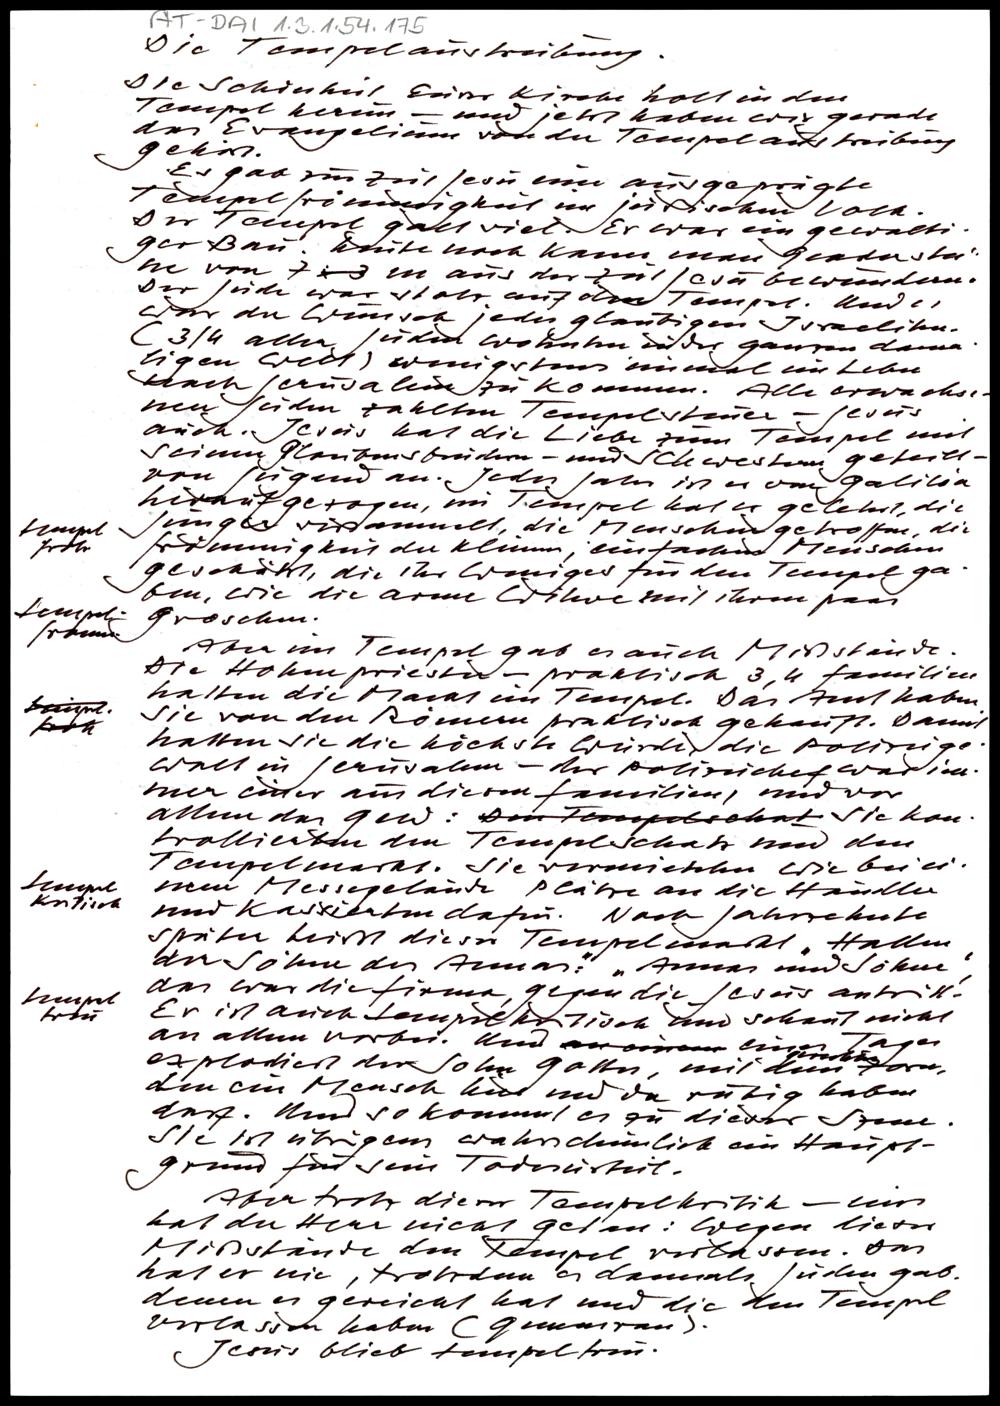 AT-DAI 1.3.1.54.175
Die Tempelaustreibung.
Die Schönheit Eurer Kirche hell in den
Tempel herein — und jetzt haben wir gerade
das Evangelium von der Tempelaustreibung
gehört.
Es gab zur Zeit Jesu eine ausgeprägte
Tempelfrömmigkeit im jüdischen Volk.
Der Tempel galt viel. Er war ein gewalti-
ger Bau. Heute noch kann man Quaderstei-
ne von 7 3 m aus der Zeit Jesu bewundern.
Der Jude war stolz auf den Tempel. Und es
war der Wunsch jedes gläubigen Israeliten
(3/4 aller Juden wohnten in der ganzen dama-
ligen Welt) wenigstens einmal im Leben
nach Jerusalem zu kommen. Alle erwachse-
nen Juden zahlten Tempelsteuer — Jesus
auch. Jesus hat die Liebe zum Tempel mit
seinen Glaubensbrüdern – und Schwestern geteilt –
von Jugend an. Jedes Jahr ist er von Galiläa
heraufgezogen, im Tempel hat er gelehrt, die
Jünger versammelt, die Menschen getroffen, die
Frömmigkeit der kleinen, einfachen Menschen
geschätzt, die ihr Weniges für den Tempel ga-
ben, wie die arme Witwe mit ihrem paar
Groschen.
tempel
tempel-
fromm
Aber im Tempel gab es auch Mißstände.
Die Hohenpriester – praktisch 3, 4 Familien
hatten die Macht im Tempel. Das Amt haben
sie von den Römern praktisch gekauft. Damit
hatten sie die höchste Würde, die Polizeige-
walt in Jerusalem – der Polizeichef war im-
mer einer aus diesen Familien, und vor
allem das Geld: Den Tempelschatz Sie kon-
trollierten den Tempelschatz und den
Tempelmarkt. Sie vermieteten wie bei ei-
nem Messegelände Plätze an die Händler
und kassierten dafür. Noch Jahrzehnte
später heißt dieser Tempelmarkt „Hallen
der Söhne des Annas“. „Annas und Söhne“,
das war die Firma, gegen die Jesus antritt.
tempel
kritisch
tempel
treu
Er ist auch tempelkritisch und schaut nicht
an allem vorbei. Und an einem eines Tages
explodiert der Sohn Gottes, mit dem Zorn,
den ein Mensch hie und da ruhig haben
darf. Und so kommt es zu dieser Szene.
Sie ist übrigens wahrscheinlich ein Haupt-
grund für sein Todesurteil.
Aber trotz dieser Tempelkritik – eines
hat der Herr nicht getan: Wegen dieser
Mißstände den Tempel verlassen. Das
hat er nie, trotzdem es damals Juden gab,
denen es gereicht hat und die den Tempel
verlassen haben (Qumran).
Jesus blieb tempeltreu.